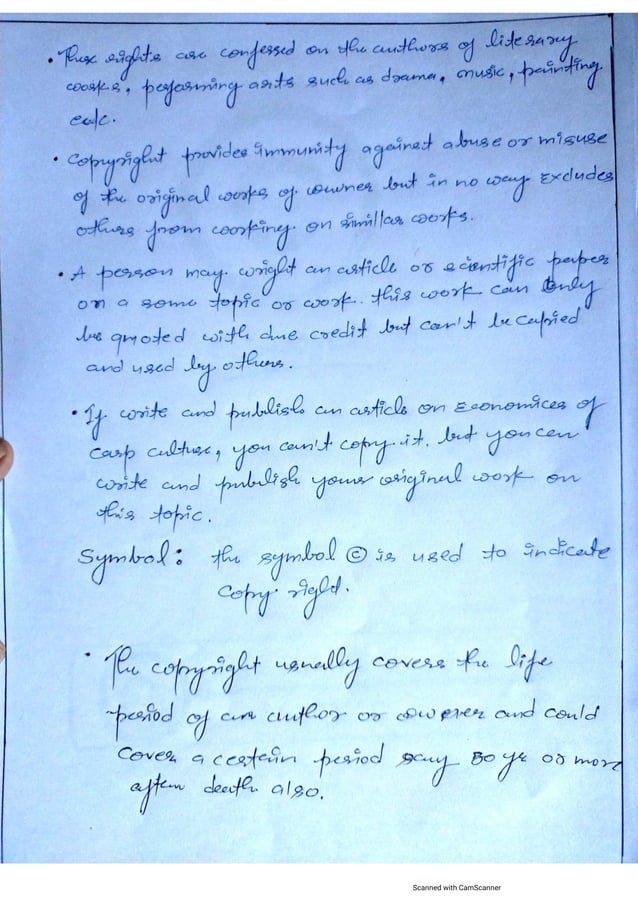 • These rights are confessed on the authors of literary
works, performing arts such as drama, music, painting
eatc.
• Copyright provides immunity against abuse or misuse
of the original works of owner but in no way Excludes
others from working on similar works.
• A person may wright an article or scientific paper
on a some topic or work. this work can Only
be quoted with due credit but can't be copied
and used by others.
• If write and publish an article on Economices of
carp culture, you can't copy it. but you can
write and publish your original work on
this topic.
Symbol: the symbol © is used to indicate
copy right.
• The copyright usually covers the life
period of an author or owner and could
cover a certain period say 50 yr or more
after death also.
Scanned with CamScanner